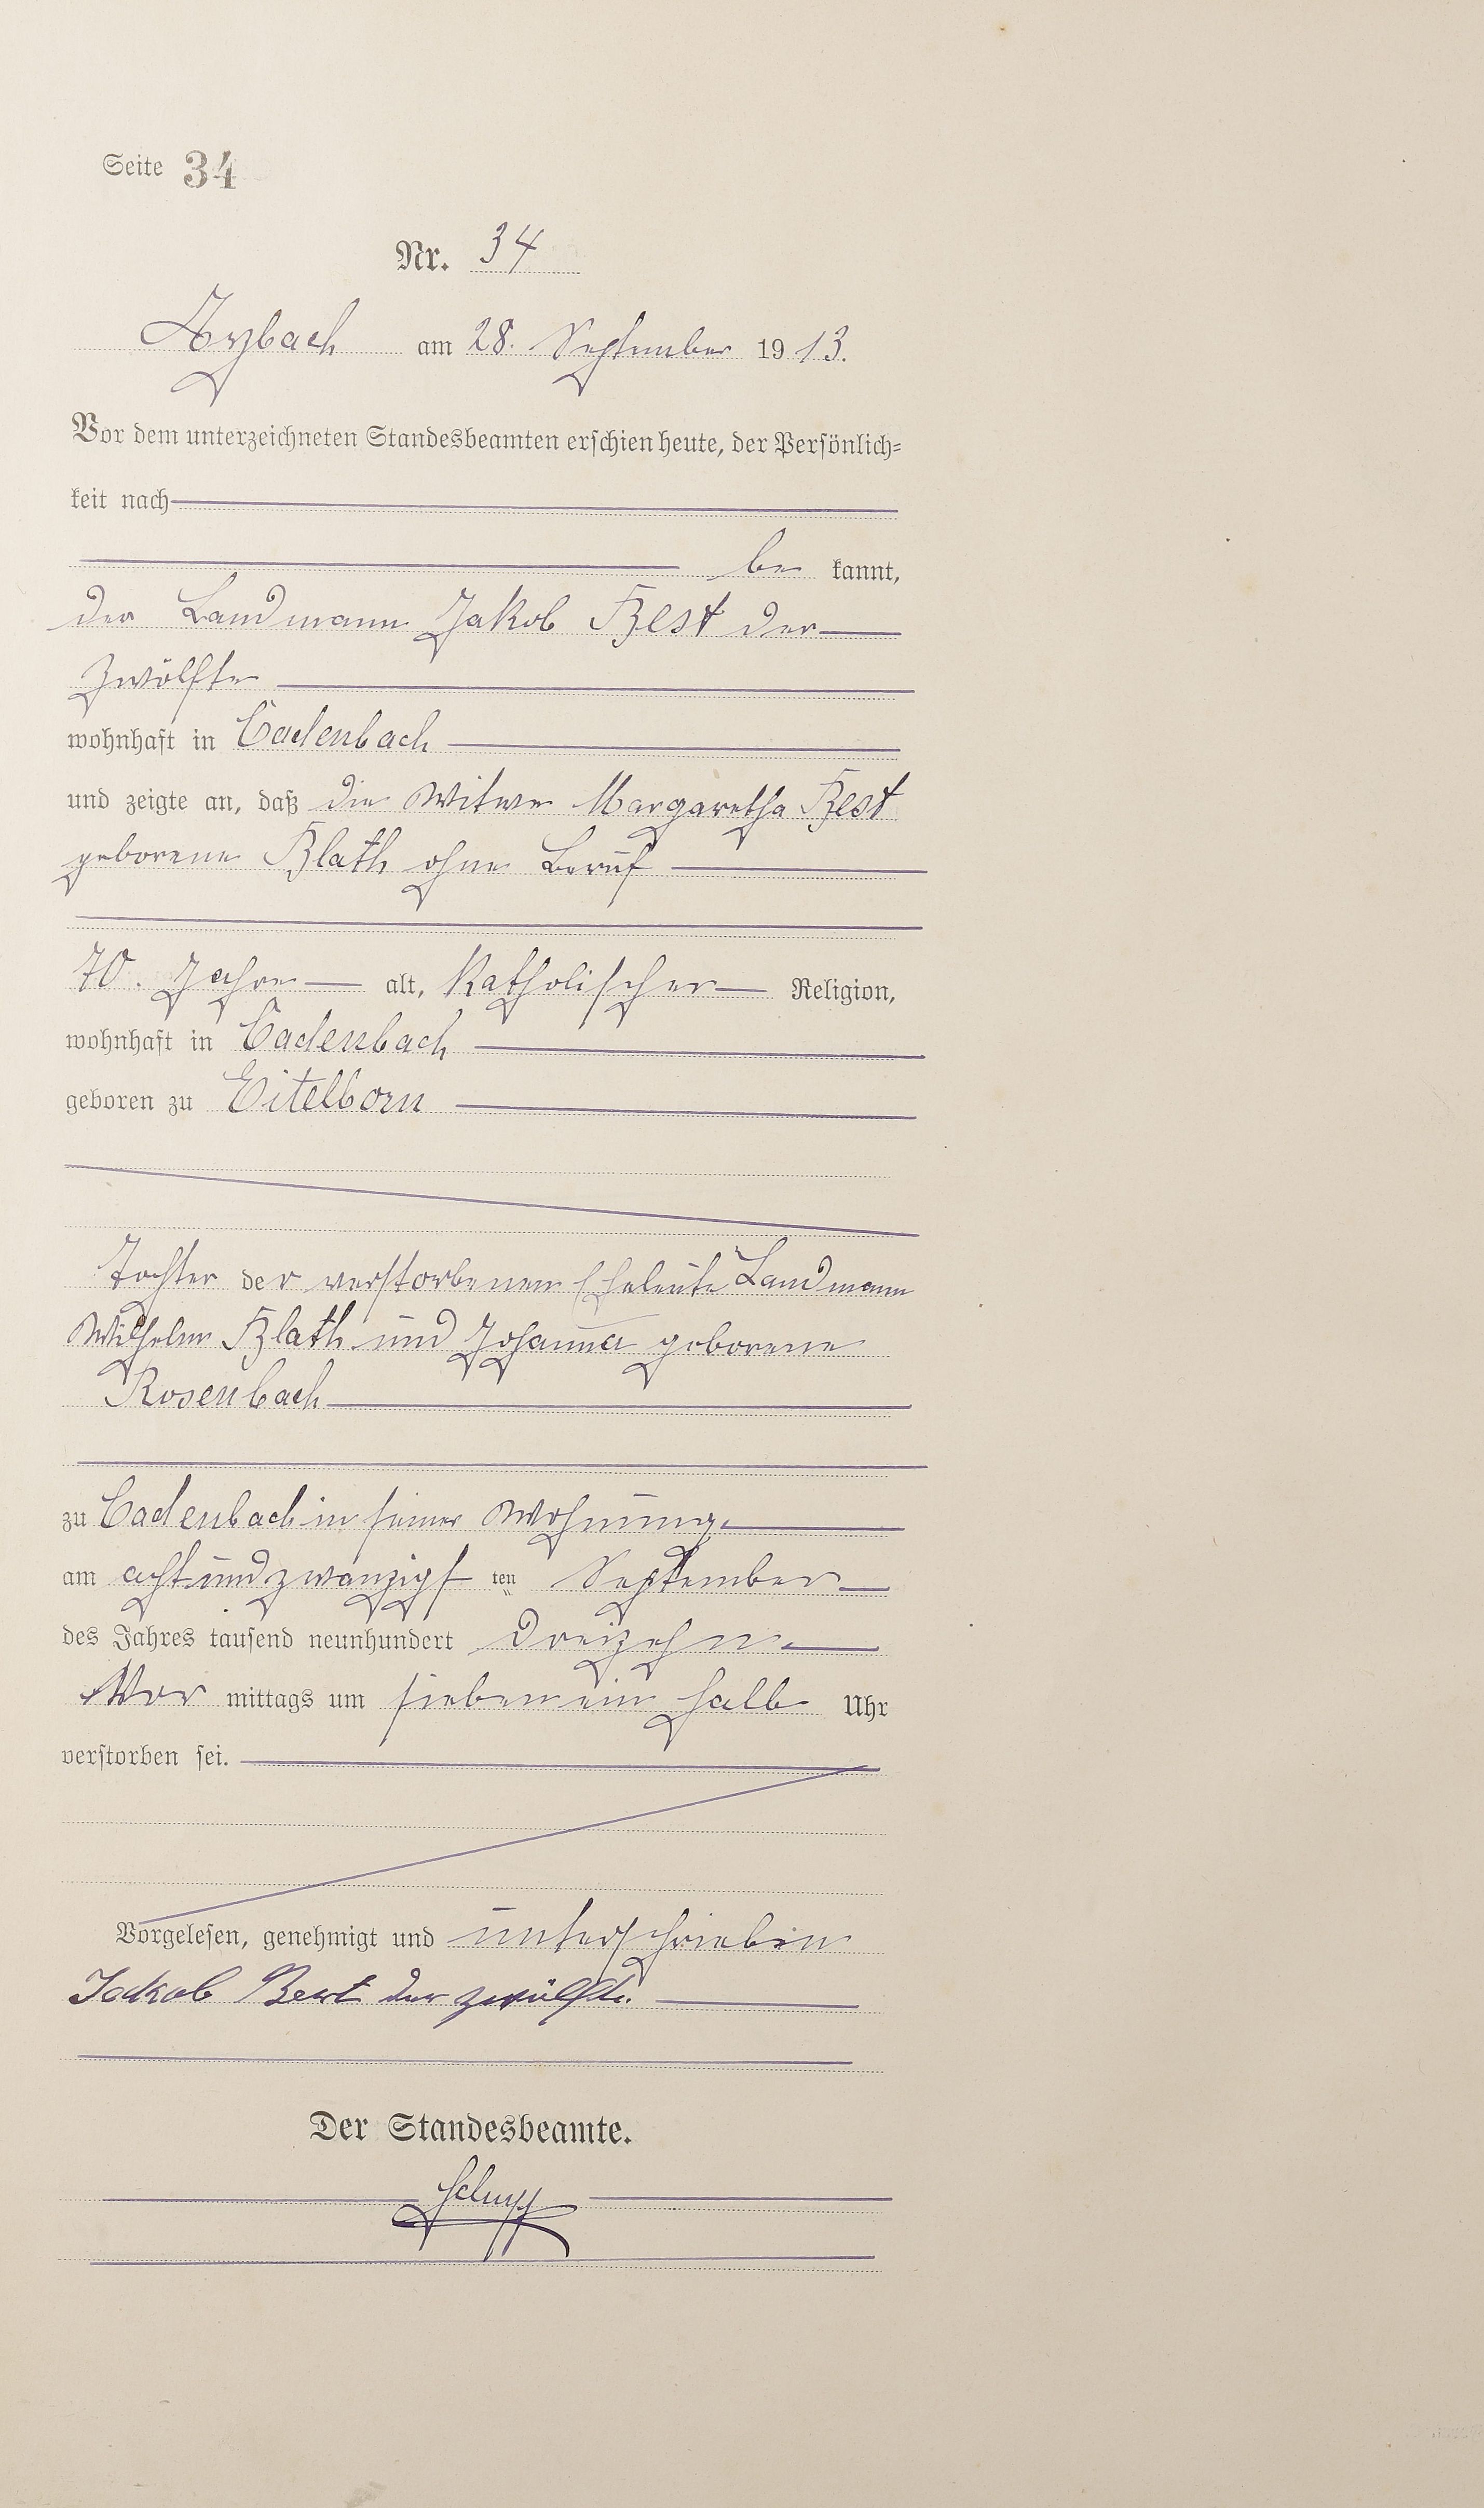 Seite 34
Nr. 34
Arzbach am 28. September 1913.
Vor dem unterzeichneten Standesbeamten erschien heute, der Persönlich-
keit nach
be kannt,
der Landmann Jakob Best der
Zwölfte
wohnhaft in Cadenbach
und zeigte an, daß die Witwe Margaretha Best
geborene Blath ohne Beruf
70. Jahre alt, Katholischer Religion,
wohnhaft in Cadenbach
geboren zu Eitelborn
Tochter der verstorbenen Eheleute Landmann
Wilhelm Blath und Johanna geborene
Rosenbach
zu Cadenbach in seiner Wohnung
am achtundzwanzigsten September
des Jahres tausend neunhundert dreizehn
Vor mittags um siebenein halb Uhr
verstorben sei.
Vorgelesen, genehmigt und unterschrieben
Jakob Best der zwölfte.
Der Standesbeamte.